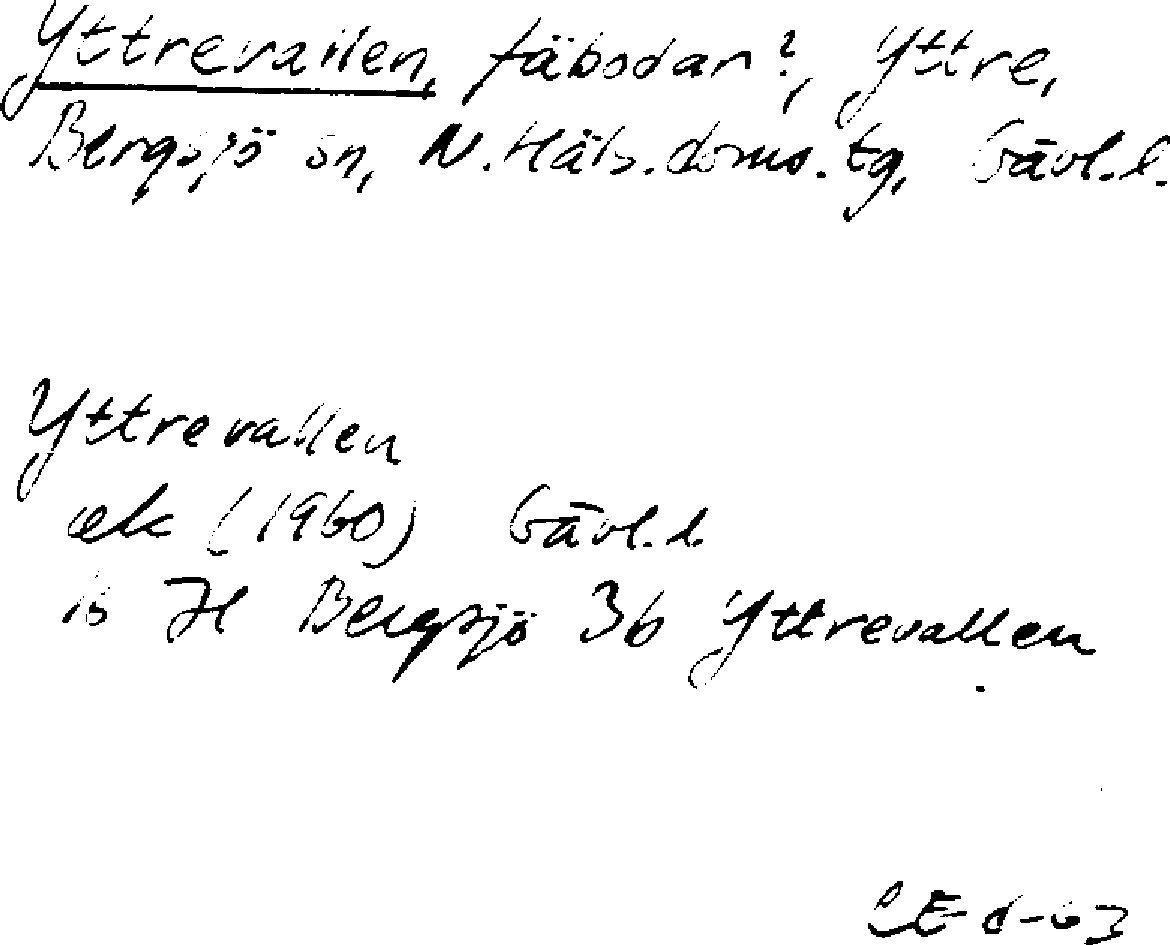 Yttrevallen, fäbodar?, Yttre,
Bergsjö sn, N. Häls. doms. tg, Gävl. l.
Yttrevallen
ek (1960) Gävl. l.
H Bergsjö 36 Yttrevallen